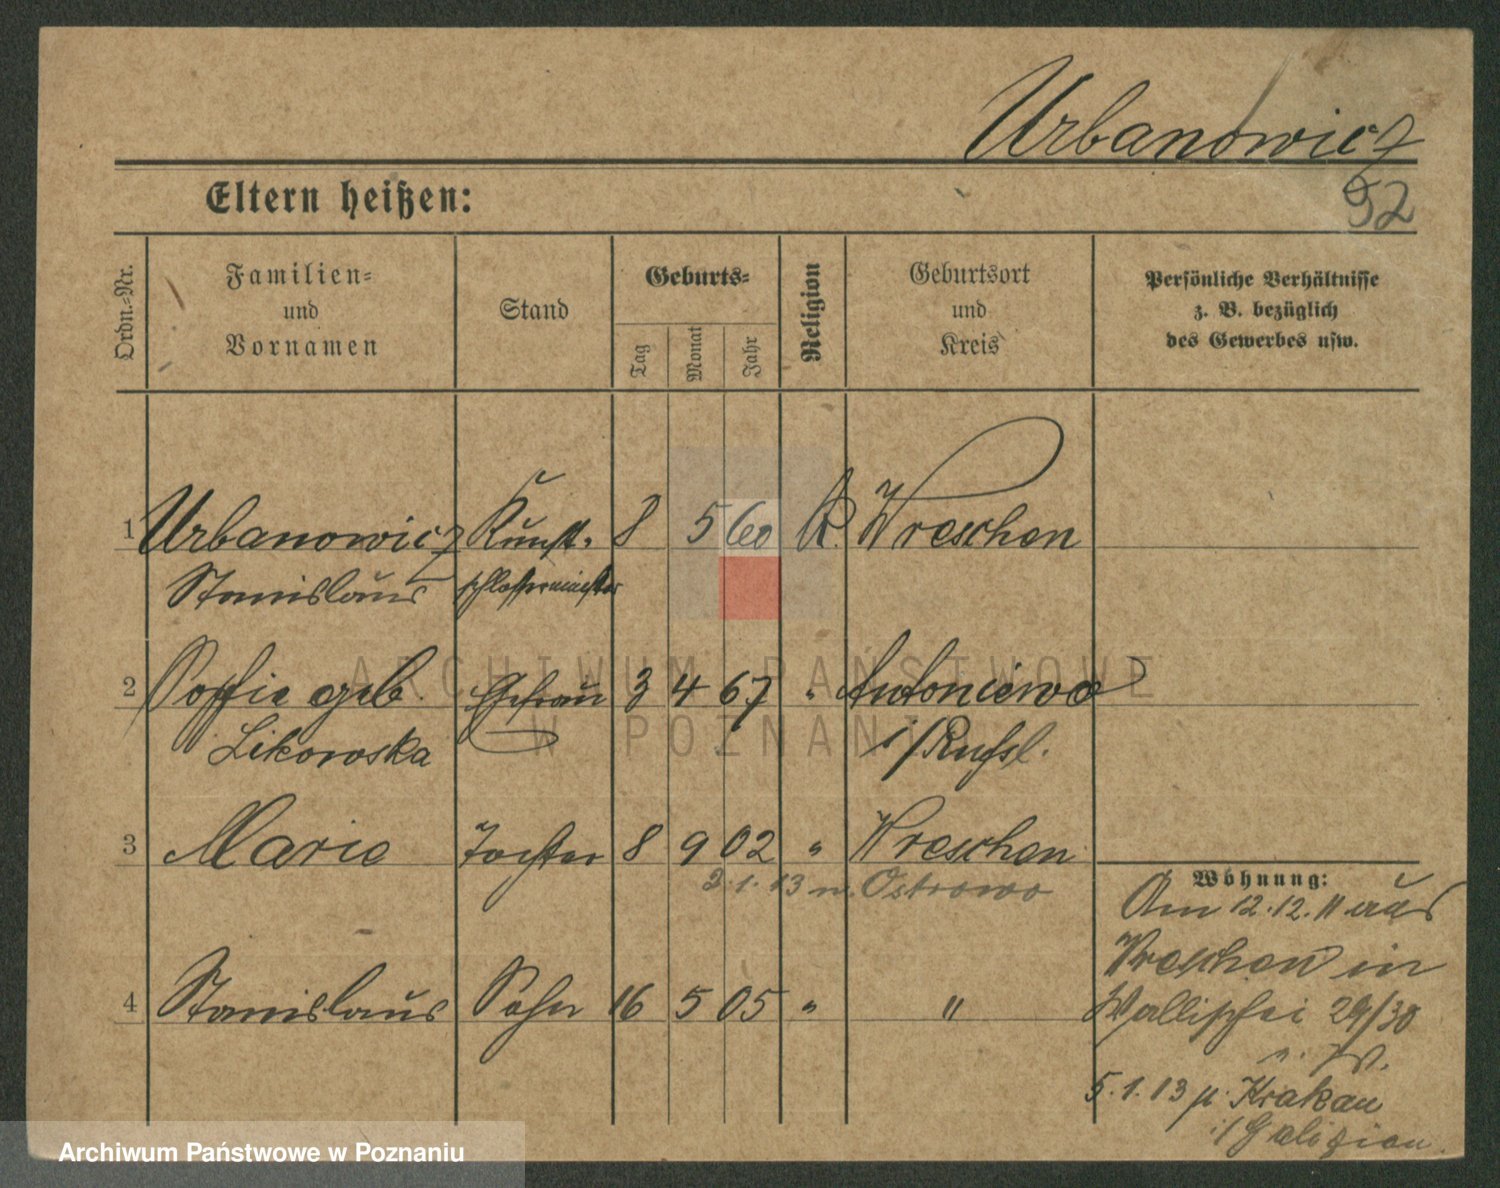 Urbanowicz
52
Eltern heißen:
Ordn.-Nr.
Familien-
und
Vornamen
Stand
Geburts-
Tag
Monat
Jahr
Religion
Geburtsort
und
Kreis
Persönliche Verhältnisse
z. B. bezüglich
des Gewerbes usw.
1 Urbanowicz Kunst- 8 5 60 K. Wreschen
Stanislaus schlossermeister
2 Soffie geb. Ehefrau 3 4 67 " Antoniewo
Likowska i/Russl.
3 Marie Tochter 8 9 02 " Wreschen
2.1.13 n. Ostrowo
4 Stanislaus Sohn 16 5 05 " "
Wohnung:
Am 12.12.11 aus
Wreschen in
Wallischei 29/30
5.1.13 n. Krakau
i/Galizien.
ARCHIWUM PAŃSTWOWE
W POZNANIU
Archiwum Państwowe w Poznaniu